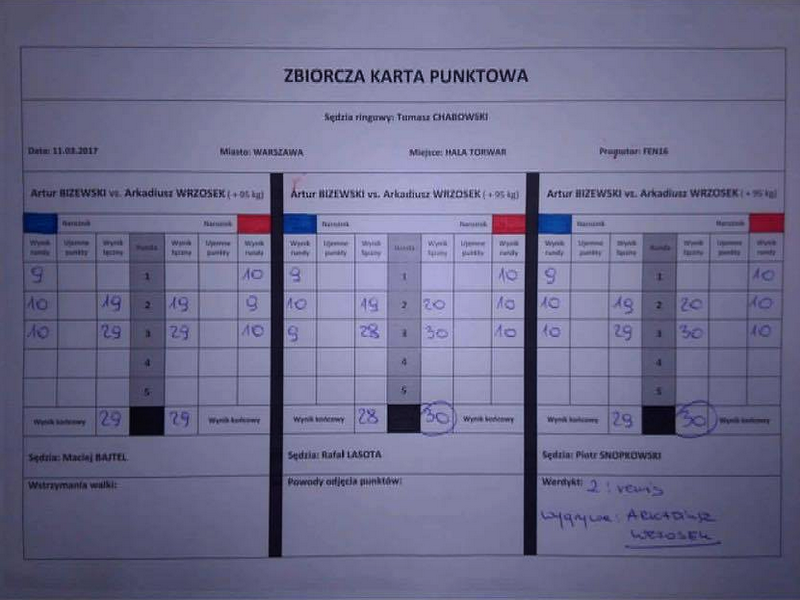 ZBIORCZA KARTA PUNKTOWA
Sędzia ringowy: Tomasz CHABOWSKI
Data: 11.03.2017 Miasto: WARSZAWA Miejsce: HALA TORWAR Promotor: FEN16
Artur BIZEWSKI vs. Arkadiusz WRZOSEK (+95 kg)
Narożnik Narożnik
Wynik rundy Ujemne punkty Wynik łączny Runda Wynik łączny Ujemne punkty Wynik rundy
9 1 10
10 19 2 19 9
10 29 3 29 10
4
5
Wynik końcowy 29 29 Wynik końcowy
Sędzia: Maciej BAJTEL
Wstrzymania walki:
Artur BIZEWSKI vs. Arkadiusz WRZOSEK (+95 kg)
Narożnik Narożnik
Wynik rundy Ujemne punkty Wynik łączny Runda Wynik łączny Ujemne punkty Wynik rundy
9 1 10
10 19 2 20 10
9 28 3 30 10
4
5
Wynik końcowy 28 30 Wynik końcowy
Sędzia: Rafał LASOTA
Powody odjęcia punktów:
Artur BIZEWSKI vs. Arkadiusz WRZOSEK (+95 kg)
Narożnik Narożnik
Wynik rundy Ujemne punkty Wynik łączny Runda Wynik łączny Ujemne punkty Wynik rundy
9 1 10
10 19 2 20 10
10 29 3 30 10
4
5
Wynik końcowy 29 30 Wynik końcowy
Sędzia: Piotr SNOPKOWSKI
Werdykt: 2 : remis
Wygrywa: ARKADIUSZ
WRZOSEK